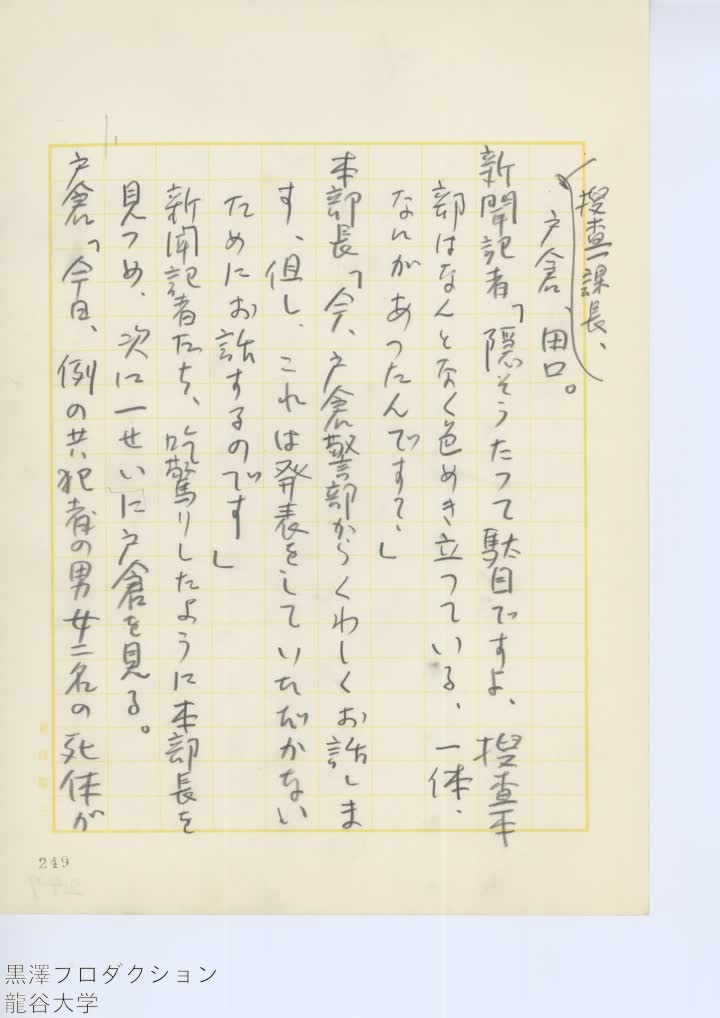 捜査一課長、
戸倉、田口。
新聞記者「隠そうたって駄目ですよ、捜査本
部はなんとなく色めき立っている、一体、
なにがあったんです?、」
本部長「今、戸倉警部からくわしくお話しま
す、但し、これは発表をしていたゞかない
ためにお話するのです」
新聞記者たち、吃驚りしたように本部長を
見つめ、次に一せいに戸倉を見る。
戸倉「今日、例の共犯者の男女二名の死体が
249
黒澤プロダクション
龍谷大学